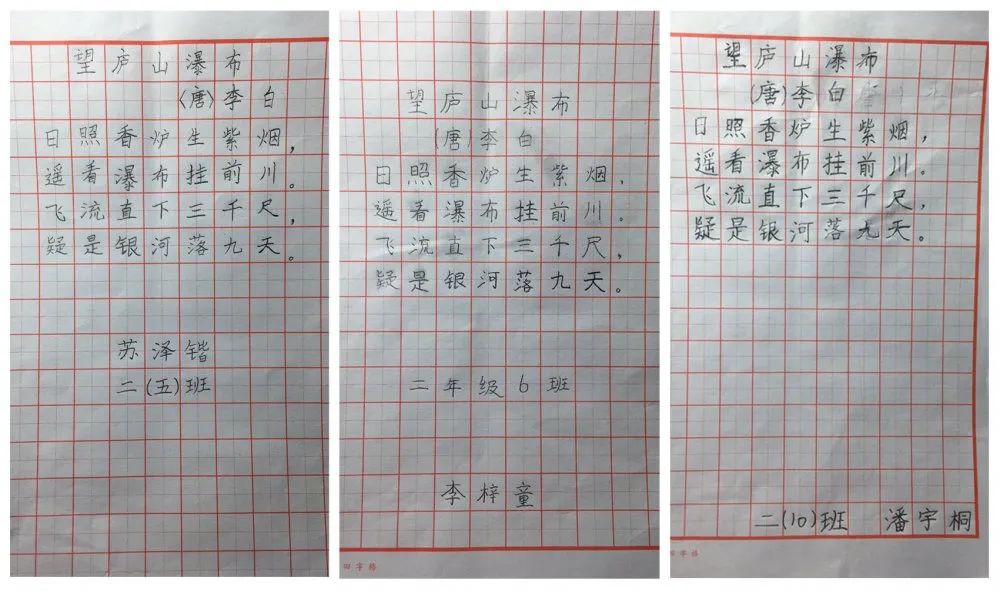 望庐山瀑布
〈唐〉李白
日照香炉生紫烟，
遥看瀑布挂前川。
飞流直下三千尺，
疑是银河落九天。
苏泽锴
二(五)班
望庐山瀑布
(唐)李白
日照香炉生紫烟，
遥看瀑布挂前川。
飞流直下三千尺，
疑是银河落九天。
二年级6班
李梓童
田字格
望庐山瀑布
(唐)李白
日照香炉生紫烟，
遥看瀑布挂前川。
飞流直下三千尺，
疑是银河落九天。
二(10)班 潘宇桐
田字格